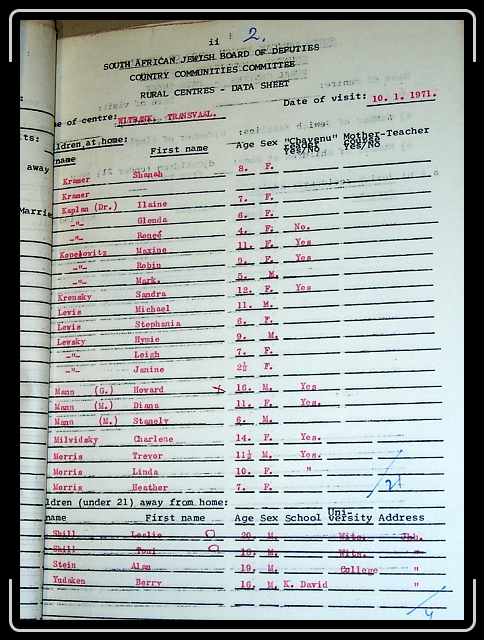 ii 2.
SOUTH AFRICAN JEWISH BOARD OF DEPUTIES
COUNTRY COMMUNITIES COMMITTEE
RURAL CENTRES - DATA SHEET
Date of visit: 10. 1. 1971.
me of centre: WITBANK. TRANSVAAL.
ildren at home:
name First name Age Sex "Chavenu" Mother-Teacher
Yes/No Yes/No
Kramer Shanah 8. F.
Kramer
Kaplan (Dr.) Ilaine 7. F.
-"- Glenda 6. F.
-"- Reneé 4. F. No.
Kopelowitz Maxine 11. F. Yes
-"- Robin 9. F. Yes
-"- Mark. 5. M.
Krensky Sandra 12. F. Yes
Lewis Michael 11. M.
Lewis Stephania 6. F.
Lewsky Hymie 9. M.
-"- Leigh 7. F.
-"- Janine 2½ F.
Mann (G.) Howard x 16. M. Yes
Mann (M.) Diana 11. F. Yes.
Mann (M.) Stanely 6. M.
Milwidsky Charlene 14. F. Yes.
Morris Trevor 11½ M. Yes.
Morris Linda 10. F. "
Morris Heather 7. F.
21
ldren (under 21) away from home:
name First name Age Sex School Uni-
versity Address
Shill Leslie 20. M. Wits. Jhb.
Shill Toni 18. M. Wits. "
Stein Alan 19. M. College "
Yudaken Berry 16. M. K. David "
4
ts:
away
Marrie